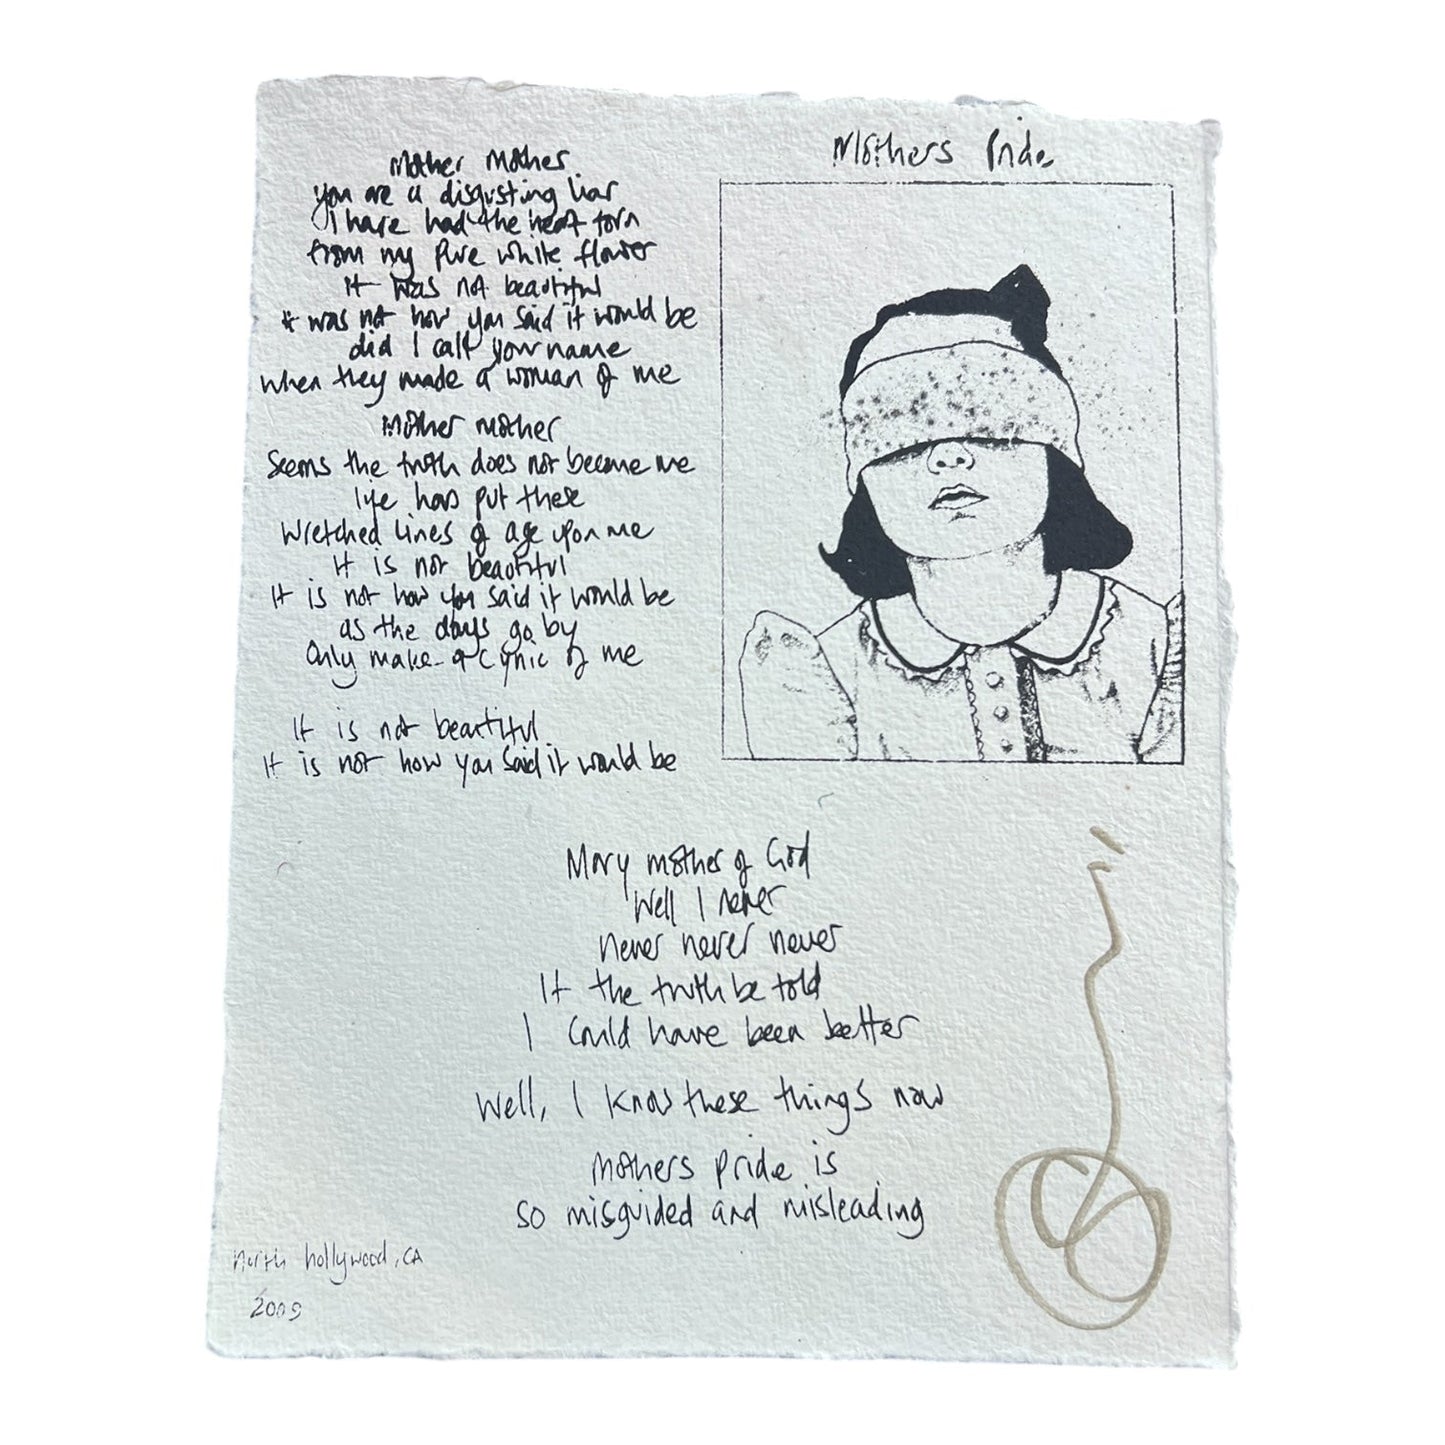 Mothers Pride
Mother Mother
you are a disgusting liar
I have had the heart torn
from my pure white flower
It was not beautiful
It was not how you said it would be
did I call your name
when they made a woman of me
Mother mother
Seems the truth does not become me
life has put these
wretched lines of age upon me
It is not beautiful
It is not how you said it would be
as the days go by
Only make a cynic of me
It is not beautiful
It is not how you said it would be
Mary mother of God
Well I never
never never never
If the truth be told
I could have been better
Well, I know these things now
mothers pride is
so misguided and misleading
north hollywood, CA
2009